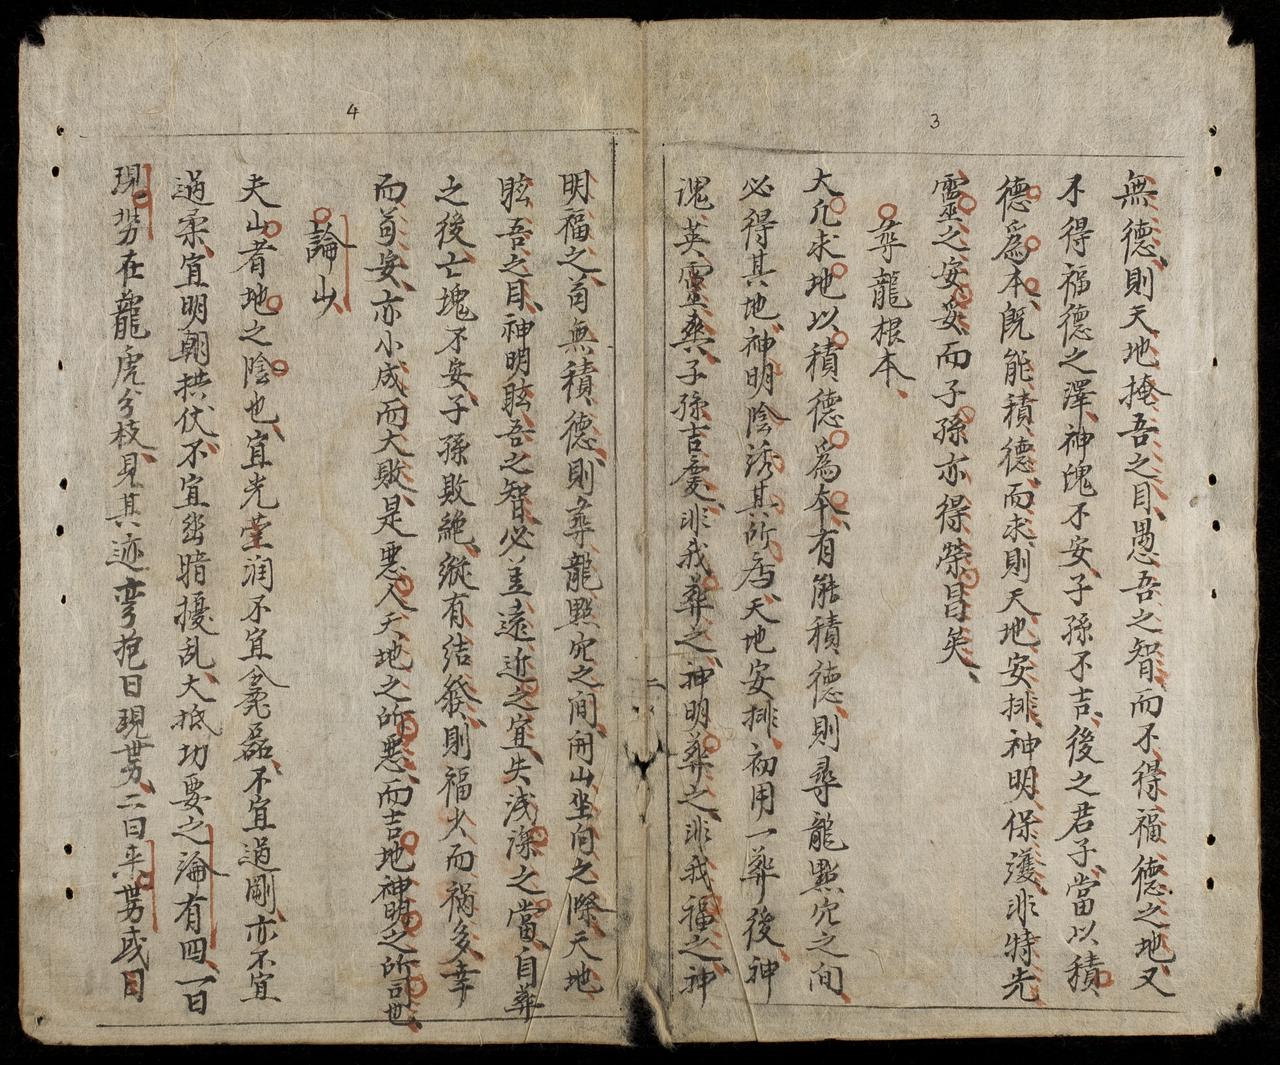 3
無德則天地掩吾之目愚吾之智而不得福德之地又
不得福德之澤神魂不安子孫不吉後之君子當以積
德爲本既能積德而求則天地安排神明保護非特先
靈之安妥而子孫亦得榮昌矣
尋龍根本
大凡求地以積德爲本有能積德則尋龍點穴之间
必得其地神明陰誘其所爲天地安排初用一葬後神
魂英靈爽子孫吉慶非我葬之神明葬之非我福之神
二
4
明福之苟無積德則尋龍點穴之間開山坐向之際天地
眩吾之目神明眩吾之智必差遠近之宜失浅深之當自葬
之後亡塊不安子孫敗絶縱有結發則福少而禍多幸
而苟安亦小成而大敗是悪人天地之所悪而吉地神明之所司也
論山
夫山者地之陰也宜光瑩润不宜麄磊不宜過剛亦不宜
過柔宜明朝拱伏不宜幽暗擾乱大抵切要之論有四一曰
現势在龍虎分枝見其迹弯抱曰現势二曰来势或曰